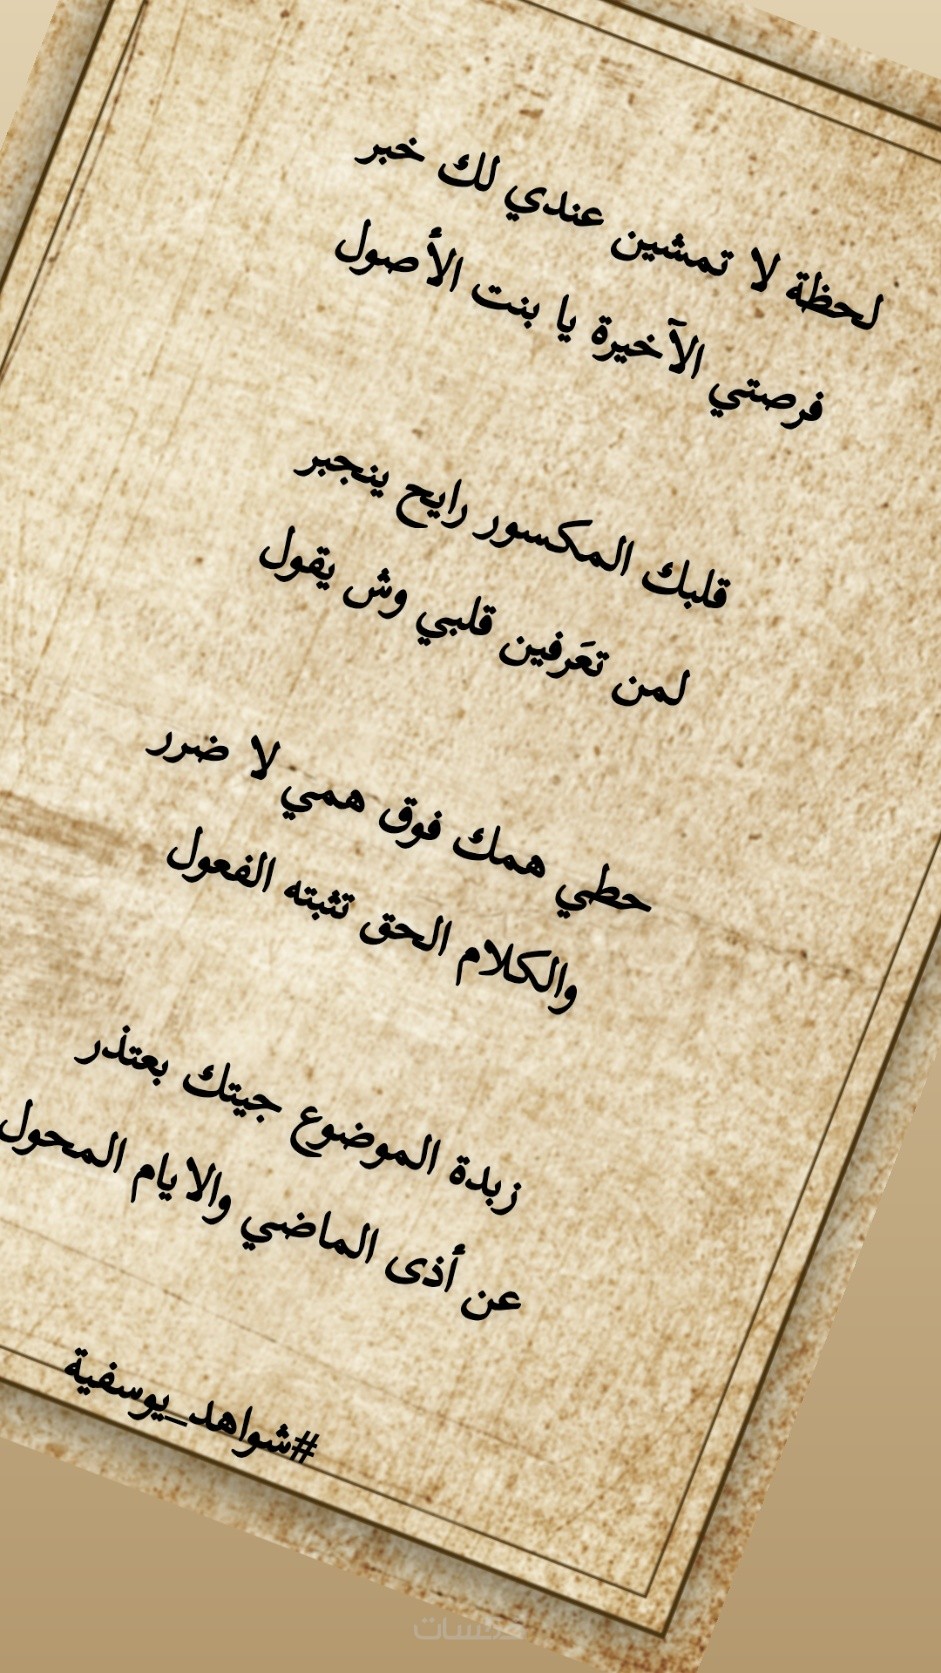 لحظة لا تمشين عندي لك خبر
فرصتي الآخيرة يا بنت الأصول
قلبك المكسور رايح ينجبر
لمن تعَرفين قلبي وش يقول
حطي همك فوق همي لا ضرر
والكلام الحق تثبته الفعول
زبدة الموضوع جيتك بعتذر
عن أذى الماضي والايام المحول
#شواهد_يوسفية